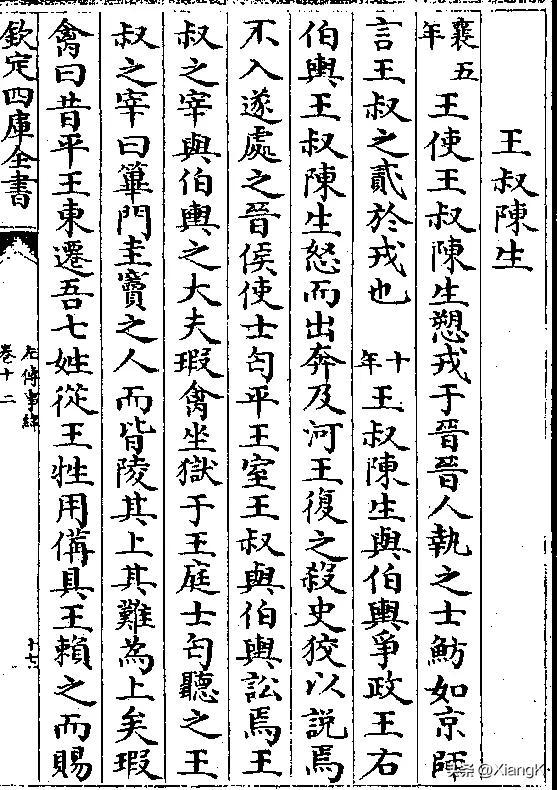 王叔陳生
襄五年 王使王叔陳生愬戎于晉晉人執之士魴如京師
言王叔之貳於戎也 十年 王叔陳生與伯輿爭政王右
伯輿王叔陳生怒而出奔及河王復之殺史狡以説焉
不入遂處之晉侯使士匄平王室王叔與伯輿訟焉王
叔之宰與伯輿之大夫瑕禽坐獄于王庭士匄聽之王
叔之宰曰篳門圭竇之人而皆陵其上其難為上矣瑕
禽曰昔平王東遷吾七姓從王牲用僃具王賴之而賜
欽定四庫全書
左傳事緯
卷十二
十七
头条 @XiangK